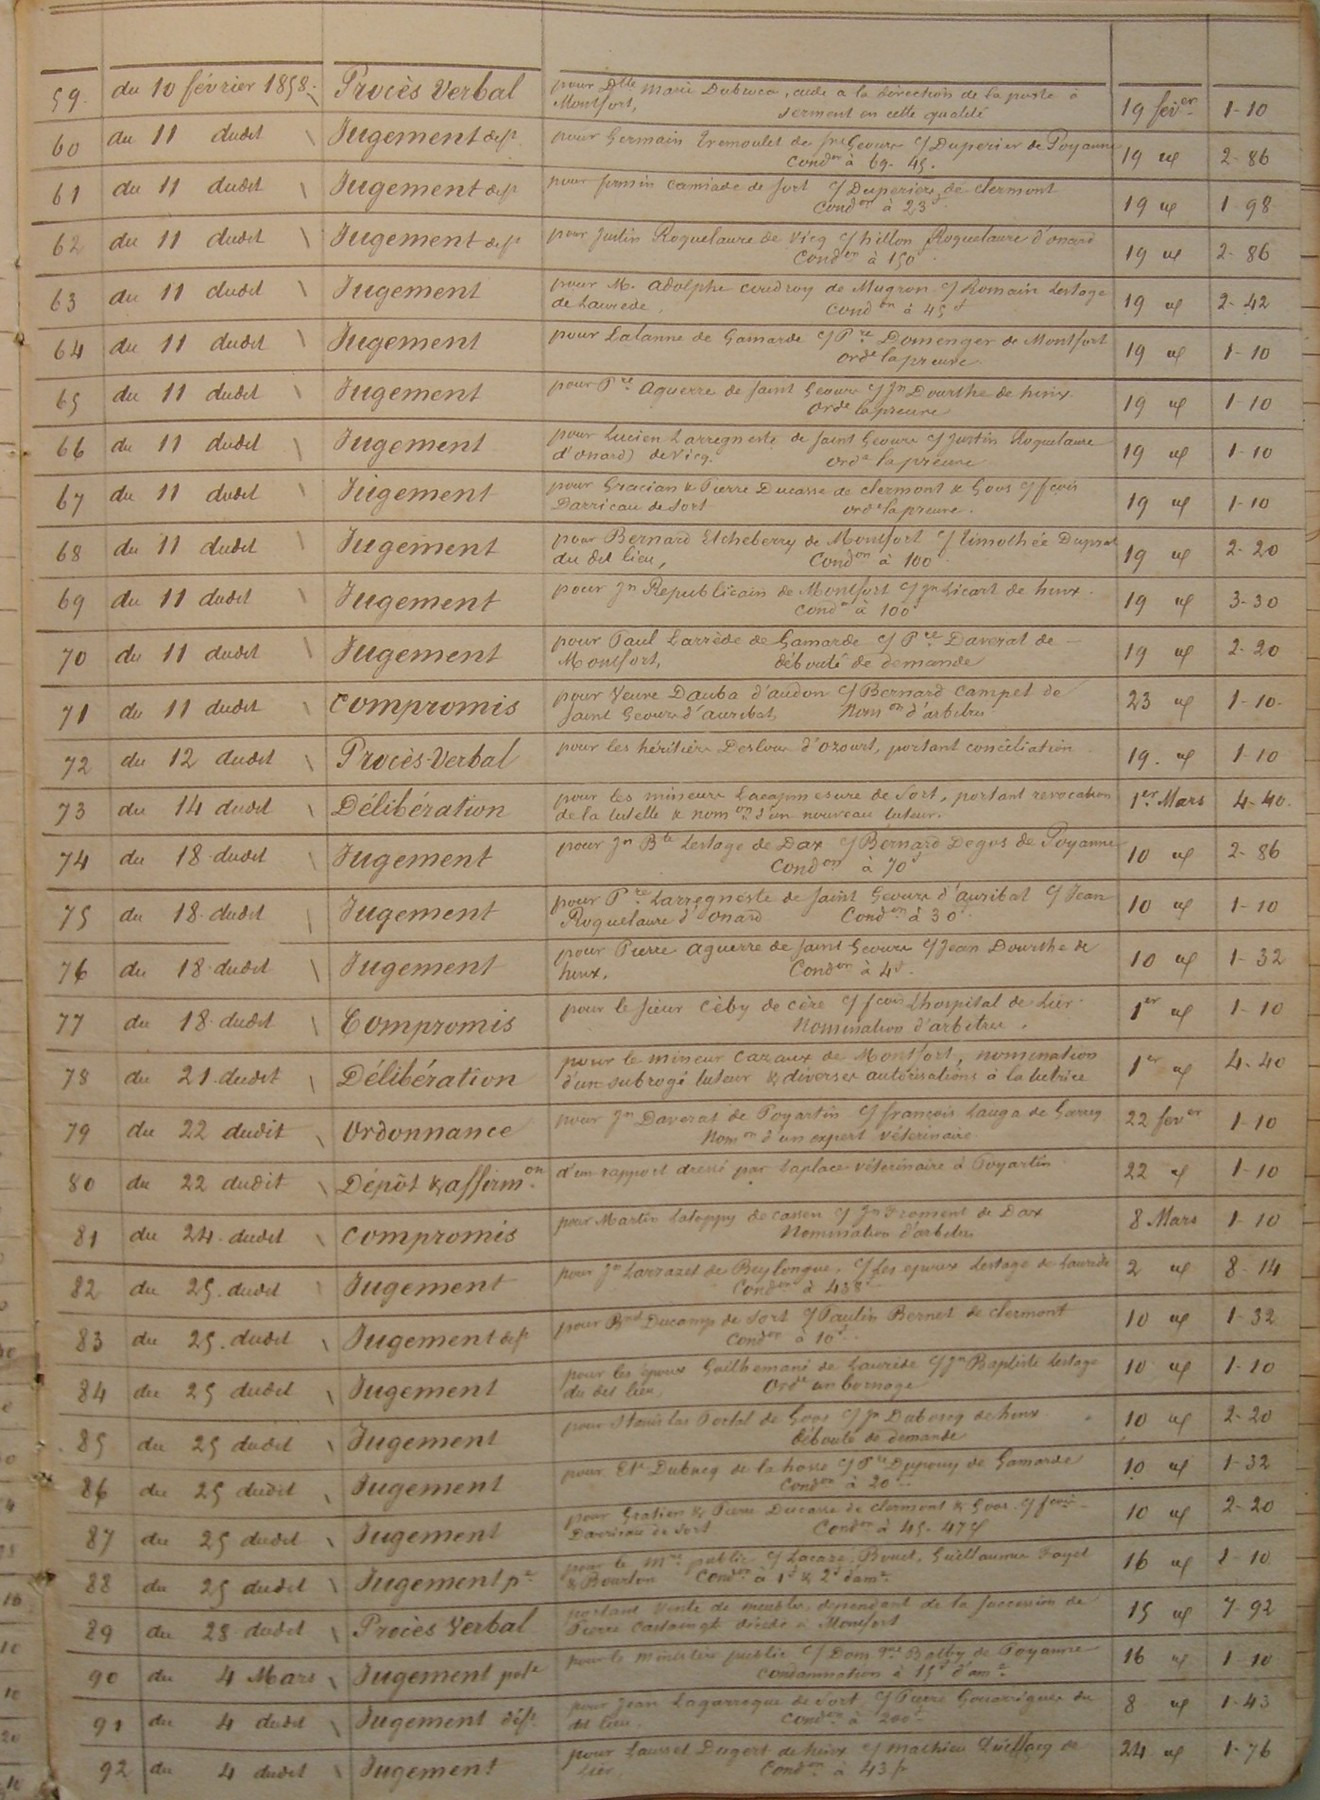 59. du 10 février 1858. Procès Verbal pour Dlle Marie Dubucq, aide a la direction de la poste à 19 féver 1-10
Montfort, serment en cette qualité
60 du 11 dudit Jugement deft pour Germain Tremoulet de St Geours c/ Duperier de Poyanne 19 id 2-86
Condon à 69-45.
61 du 11 dudit Jugement deft pour firmin Camiade de Sort c/ Duperier de Clermont 19 id 1-98
Condon à 23f
62 du 11 dudit Jugement deft pour Justin Roquelaure de Vicq c/ hillon Roquelaure d'onard 19 id 2-86
Condon à 150
63 du 11 dudit Jugement pour M. adolphe Coudroy de Mugron c/ Romain Lestage 19 id 2-42
de Laurede, Condon à 45f
64 du 11 dudit Jugement pour Lalanne de Gamarde c/ Pre Domenger de Montfort 19 id 1-10
orde la preuve
65 du 11 dudit Jugement pour Pre aguerre de Saint Geours c/ Jn Dourthe de hinx 19 id 1-10
orde la preuve
66 du 11 dudit Jugement pour Lucien Larregneste de Saint Geours c/ Justin Roquelaure 19 id 1-10
d'onard) de Vicq. orde la preuve
67 du 11 dudit Jugement pour Gracian & Pierre Ducasse de Clermont & Goos c/ fcois 19 id 1-10
Darricau de Sort orde la preuve.
68 du 11 dudit Jugement pour Bernard Etcheberry de Montfort c/ timothée Duprat 19 id 2-20
du dit lieu, Condon à 100
69 du 11 dudit Jugement pour Jn Republicain de Montfort c/ Jn Licart de hinx. 19 id 3-30
Condon à 100f
70 du 11 dudit Jugement pour Paul Larrède de Gamarde c/ Pre Daverat de 19 id 2-20
Montfort, débouté de demande
71 du 11 dudit Compromis pour Veuve Dauba d'audon c/ Bernard Campet de 23 id 1-10-
Saint Geours d'auribat, Nomon d'arbitre
72 du 12 dudit Procès-Verbal pour les héritiers Deslous d'ozourt, portant conciliation 19. id 1-10
73 du 14 dudit Délibération pour les mineurs de Sort, portant revocation 1er Mars 4-40.
de la tutelle & nomon d'un nouveau tuteur.
74 du 18 dudit Jugement pour Jn Bte Lestage de Dax c/ Bernard Degos de Poyanne 10 id 2-86
Condon à 70f
75 du 18 dudit Jugement pour Pre Larregneste de Saint Geours d'auribat c/ Jean 10 id 1-10
Roquelaure d'onard Condon à 30f
76 du 18 dudit Jugement pour Pierre aguerre de Saint Geours c/ Jean Dourthe de 10 id 1-32
hinx. Condon à 4f.
77 du 18 dudit Compromis pour le sieur Céby de Cère c/ fcois Lhospital de Lier 1er id 1-10
Nomination d'arbitre.
78 du 21 dudit Délibération pour le mineur Cazaux de Montfort, nomination 1er id 4-40
d'un subrogé tuteur & diverses autorisations à la tutrice
79 du 22 dudit Ordonnance pour Jn Daverat de Poyartin c/ françois Lauga de Garrey 22 fever 1-10
Nomon d'un expert vétérinaire
80 du 22 dudit Dépôt & affirmon d'un rapport dressé par Laplace vétérinaire à Poyartin 22 id 1-10
81 du 24 dudit Compromis pour Martin Latoppy de Cassen c/ Jn Froment de Dax 8 Mars 1-10
Nomination d'arbitre
82 du 25 dudit Jugement pour Jn Larrazet de Beylongue. c/ Les epoux Lestage de Laurede 2 id 8-14
Condon à 438f
83 du 25 dudit Jugement deft pour Bnd Ducamp de Sort c/ Paulin Bernet de Clermont 10 id 1-32
Condon à 10f.
84 du 25 dudit Jugement pour les époux Guilhemans de Laurède c/ Jn Baptiste Lestage 10 id 1-10
du dit lieu, Orde un bornage
85 du 25 dudit Jugement pour Stanislas Portal de Goos c/ Jn Duboscq de hinx 10 id 2-20
débouté de demande
86 du 25 dudit Jugement pour Et Dubucq de la hosse c/ Pre Dupouy de Gamarde 10 id 1-32
Condon à 20f
87 du 25 dudit Jugement pour Gratien & Pierre Ducasse de Clermont & Goos c/ fcois 10 id 2-20
Darricau de Sort Condon à 45-47c
88 du 25 dudit Jugement pe pour le Mre public c/ Lacaze, Bouet, Guillaumin Fayet 16 id 1-10
& Bourton Condon à 1f & 2f d'amde
89 du 28 dudit Procès Verbal portant Vente de meubles dependant de la succession de 15 id 7-92
Pierre Castaingt décédé à Montfort
90 du 4 Mars Jugement pole pour le ministère public c/ Domque Balby de Poyanne 16 id 1-10
Condamnation à 15f d'amde
91 du 4 dudit Jugement déft pour Jean Lagarrigue de Sort c/ Pierre Gouarrigues du 8 id 1-43
dit lieu, Condon à 200f
92 du 4 dudit Jugement pour Laurent Dugert de hinx c/ Mathieu de 24 id 1-76
Lier, Condon à 43 f